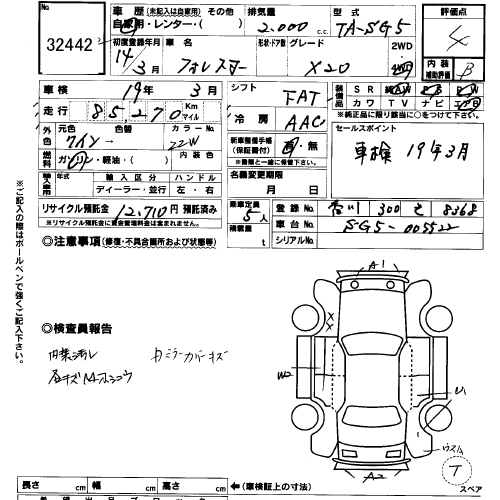 No. 32442
車歴 (未記入は自家用) その他 自家用・レンター・( )
排気量 2,000 cc
型式 TA-SG5
評価点 4
初度登録年月 14年 3月
車名 フォレスター
形状・ドア数 グレード X20
2WD・4WD
内装補助評価 B
車検 19年 3月
シフト FAT
装備品 SR 純AW PS PW
カワ TV ナビ エアB
※純正品に限り該当に○をつけて下さい。
走行 85,270 Km マイル
冷房 AAC
セールスポイント
車検 19年3月
外色 元色 ワイン → 色替 カラーNo. 22W
新車整備手帳(保証書付) 有・無
※書類と一緒に保管下さい。
燃料 ガソリン・軽油・( )
名義変更期限 月 日
輸入車用 年式 輸入区分 ハンドル
ディーラー・並行 左・右
リサイクル預託金 12,710円 預託済み
※リサイクル預託金に資金管理料金は含まれません。
乗車定員 5人
積載量 t
登録No. 香川 300 そ 8368
車台No. SG5-005522
シリアルNo.
◎注意事項(修復・不具合箇所および状態等)
※ご記入の際はボールペンで強くご記入下さい。
A1
X
X
W2
U1
A2
◎検査員報告
内装汚れ 力ミラーカバーキズ
各キズ
T
スペア
長さ cm 幅 cm 高さ cm ←(車検証上の寸法)